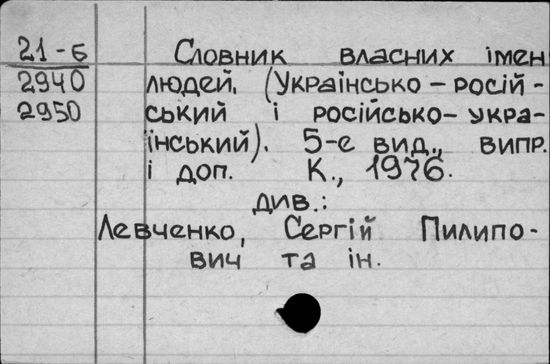 21-Б Словник власних імен
2940 людей. (Українсько-росій-
2950 ський і російсько-укра-
їнський). 5-е вид., випр.
і доп. К., 1976.
див.:
Левченко, Сергій Пилипо-
вич та ін.